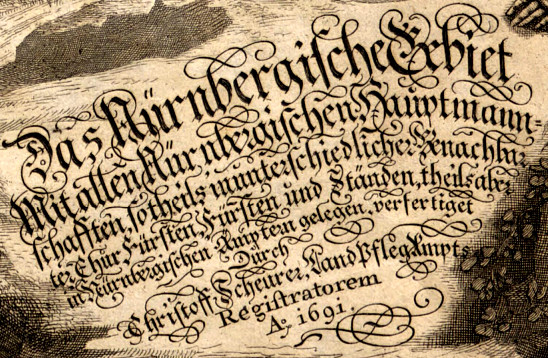 Das Nürnbergische Gebiet
Mit allen Nürnbergischen Hauptmann-
schafften, so theils in unterschiedlicher Benachbar-
ter Chur Fürsten, Fürsten und Ständen, theils aber
in Nürnbergischen Ämptern gelegen, verfertiget
Durch
Christoff Scheurer, Land Pfleg Ampts
Registratorem
Aō 1691.